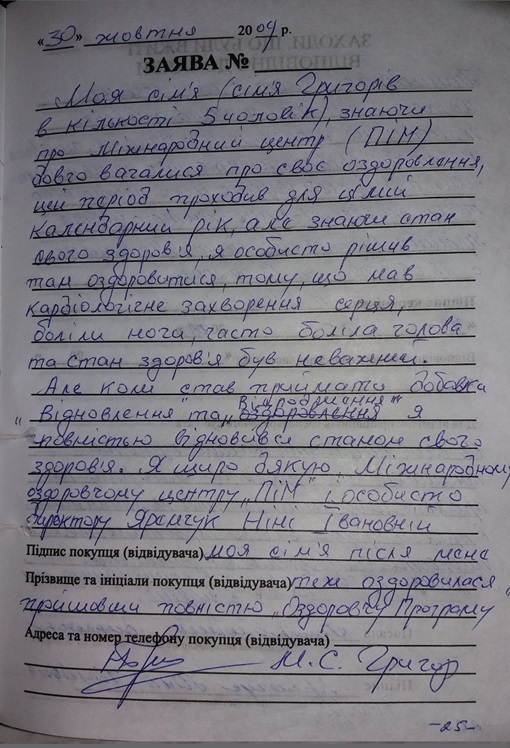 «30» жовтня 2009 р.
ЗАЯВА №
Моя сім'я (сім'я Григорів
в кількості 5 чоловік), знаючи
про Міжнародний центр (ПІМ)
довго вагалися про своє оздоровлення,
цей період проходив для цілий
календарний рік, але знаючи стан
свого здоров'я, я особисто рішив
там оздоровитися, тому, що мав
кардіологічне захворення серця,
боліли нога, часто боліла голова
та стан здоров'я був неважний.
Але коли став приймати добавки
"Відновлення" та "оздоровлення" я
повністю відновився станом свого
здоров'я. Я щиро дякую Міжнародному
оздоровчому центру "ПІМ" і особисто
директору Яремчук Ніні Івановній
Підпис покупця (відвідувача) моя сім'я після мене
Прізвище та ініціали покупця (відвідувача) теж оздоровилася
пройшовши повністю "Оздоровчу Програму"
Адреса та номер телефону покупця (відвідувача)
М. С. Григор
-25-